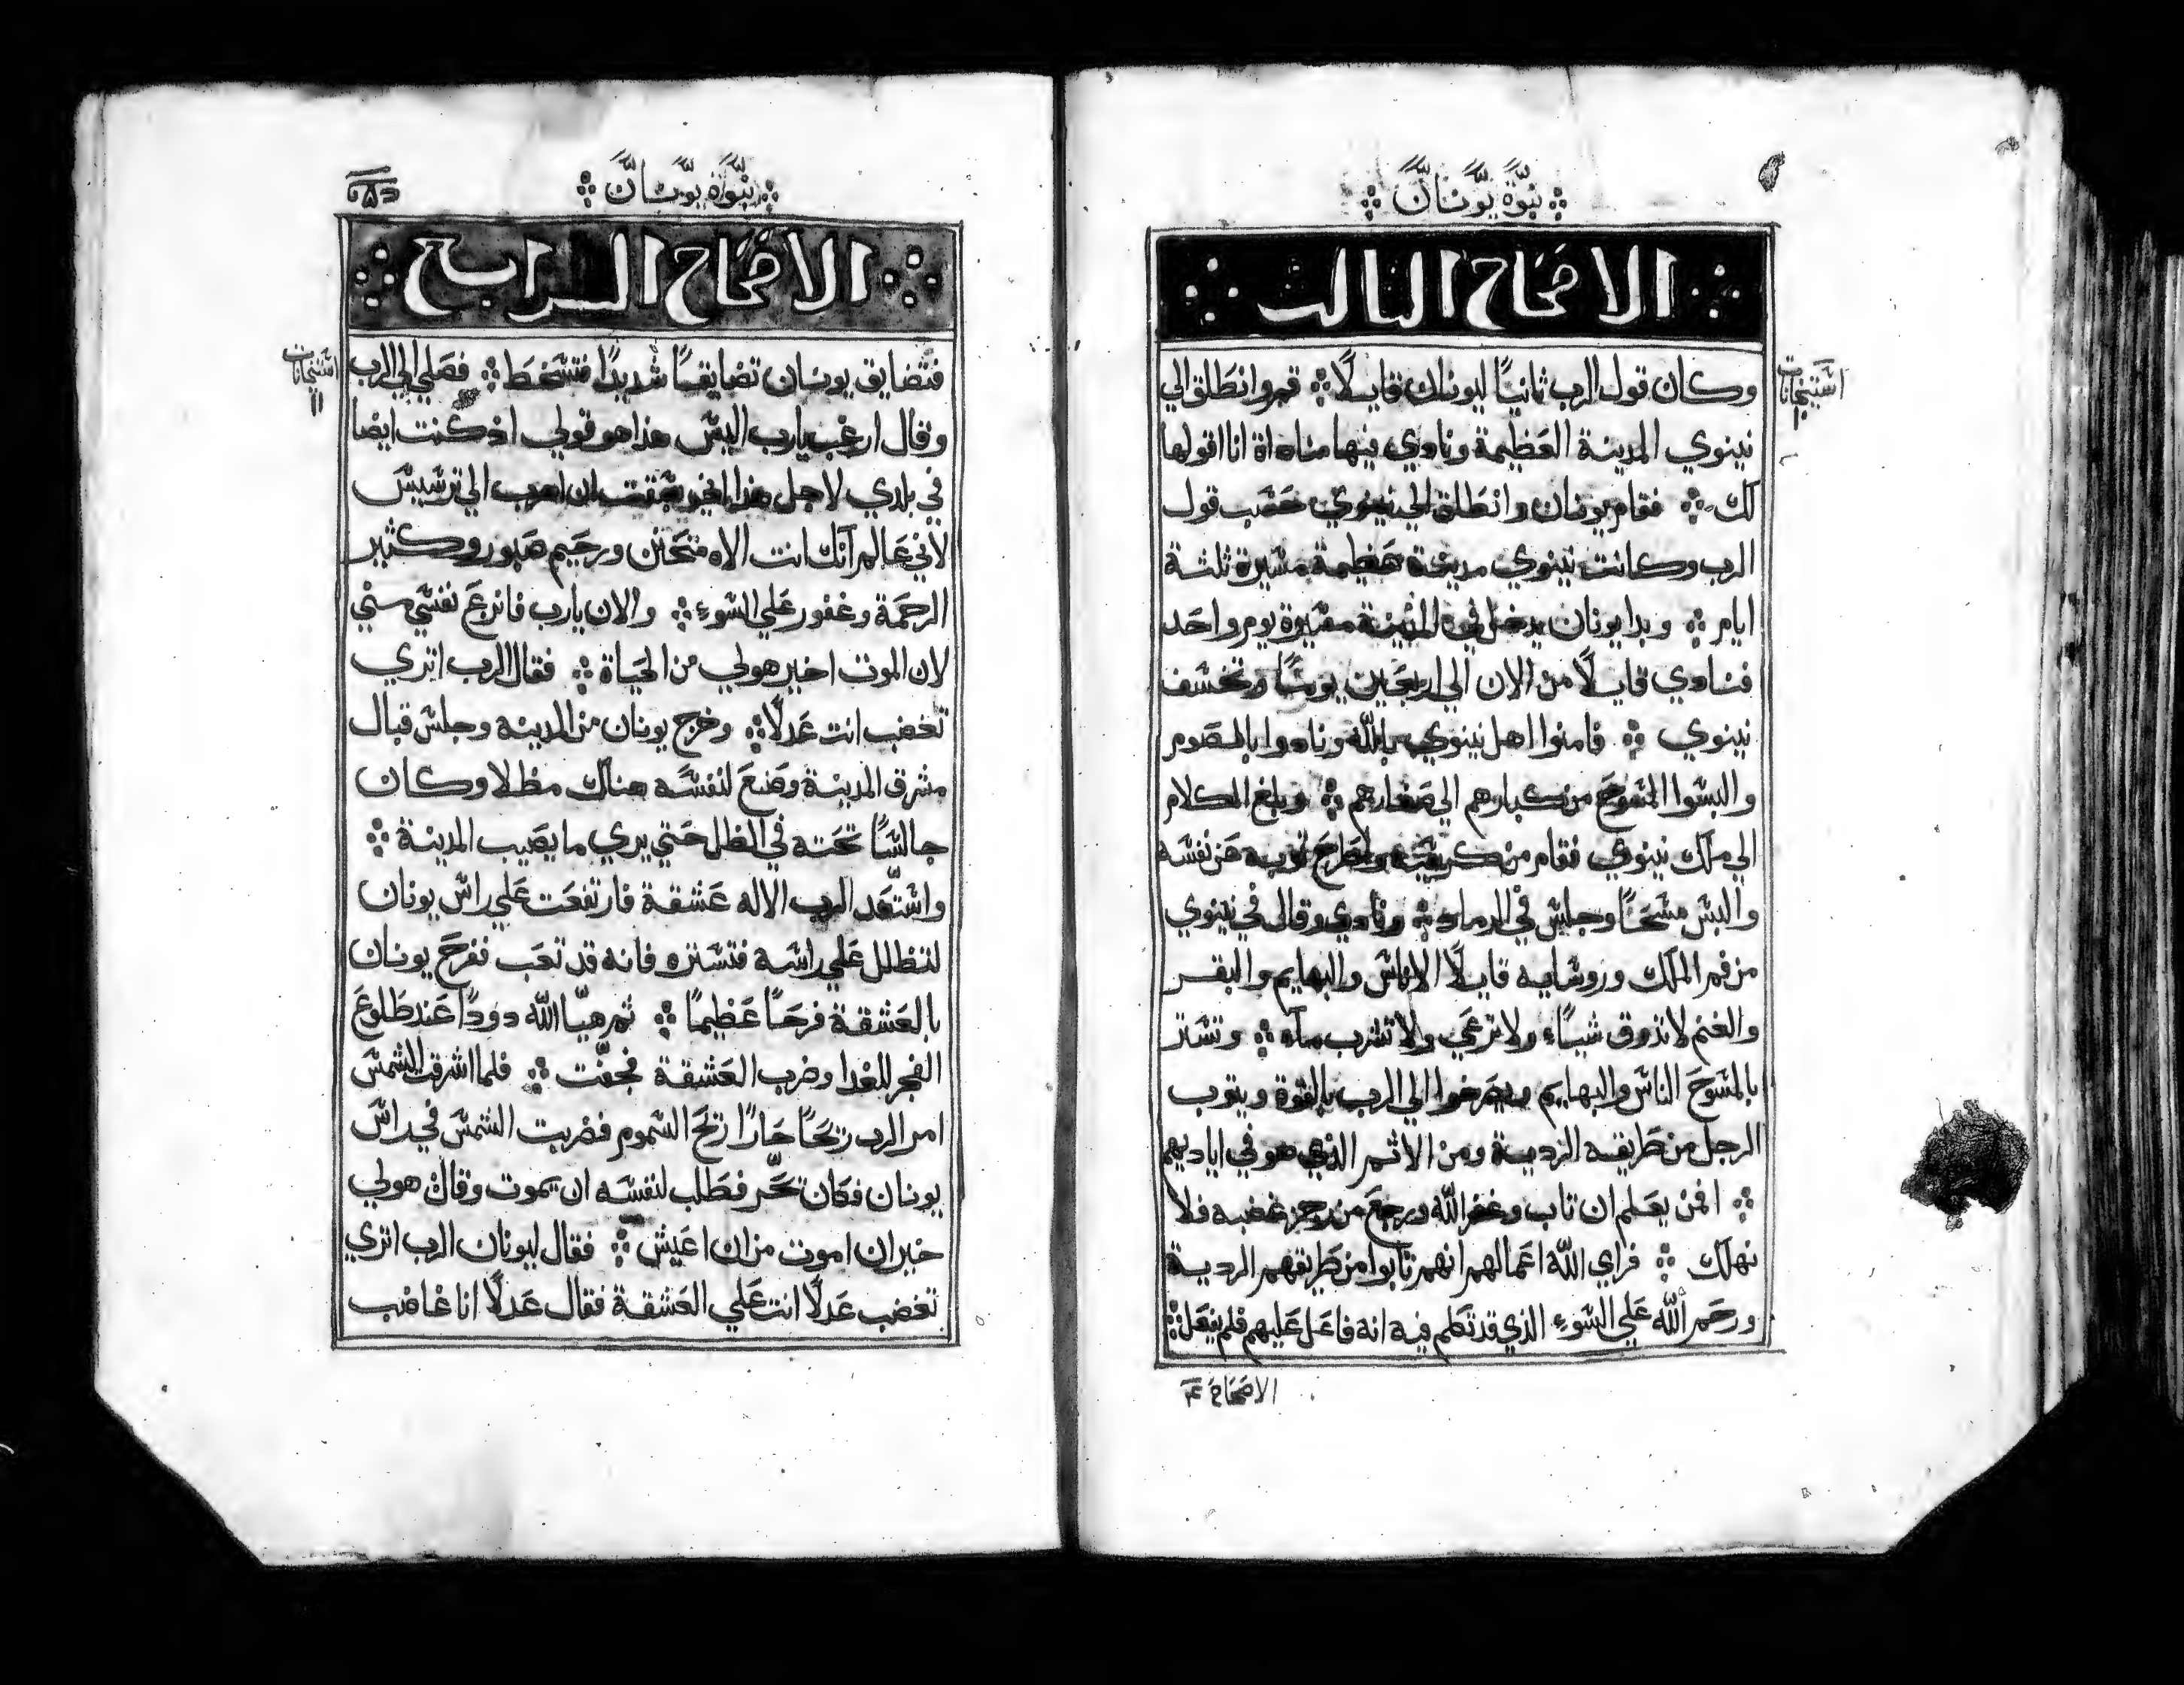 نبوَّة يوَّنانَّ
الاصحاح التالت
اشتيخانات
١
وكان قول الرب ثانيًا ليونان قايلًا قمر وانطلق الي
نينوي المدينة العظيمة ونادي فيها مناداة انا اقولها
لك فقام يونان وانطلق الي نينوي حسب قول
الرب وكانت نينوي مدينة عظيمة مسيرة ثلثة
ايام وبدا يونان يدخل في المدينة مسيرة يوم واحد
فنادي قايلًا من الان الي اربعين يومًا وتخسف
نينوي فامنوا اهل نينوي بالله ونادوا بالصوم
والبسوا المسوح من كبارهم الي صغارهم وبلغ الكلام
الي ملك نينوي فقام من كرسيه وطرح ثوبه عن نفسه
والبس مسحًا وجلس في الرماد ونادي وقال في نينوي
من فم الملك وروسايه قايلًا الاناس والبهايم والبقر
والغنم لا تذوق شيًاء ولا ترعي ولا تشرب مآء وتستتر
بالمسوح الناس والبهايم ويصرخوا الي الرب بالقوة ويتوب
الرجل من طريقه الردية ومن الاثم الذي هو في اياديهم
افمن يعلم ان تاب وغفر الله ورجع من رجز غضبه فلا
نهلك فراي الله اعمالهم انهم تابوا من طريقهم الردية
ورحم الله علي السوء الذي قد تكلم فيه انه فاعل عليهم فلم يفعل
الاصحاح ٤
نبوَّة يوَّنانَّ
الاصحاح الرابع
اشتيخانات
١١
فتضايق يونان تضايقًا شديدًا فتسخط فصلي الي الرب
وقال ارغب يارب اليس هذا هو قولي اذ كنت ايضا
في بلدي لاجل هذا الخبر سبقت ان اهرب الي ترسيس
لاني عالم آنك انت الاه متحنن ورحيم صبور وكثير
الرحمة وغفور علي السوء والان يارب فانزع نفسي مني
لان الموت اخير هو لي من الحياة فقال الرب اتري
تغضب انت عدلًا وخرج يونان من المدينه وجلس قبال
مشرق المدينة وصنع لنفسه هناك مظلا وكان
جالسًا تحته في الظل حتي يري ما يصيب المدينة
واستعد الرب الاله عشقة فارتفعت علي راس يونان
لتظلل علي راسه فتستره فانه قد تعب ففرح يونان
بالعشقة فرحًا عظيمًا ثم هيّا الله دودًا عند طلوع
الفجر للغدا وضرب العشقة فجفت فلما اشرقت الشمس
امر الرب ريحًا حارًا ريح السموم فضربت الشمس في راس
يونان فكان تحّر فطلب لنفسه ان يموت وقال هو لي
خير ان اموت من ان اعيش فقال ليونان الرب اتري
تغضب عدلًا انت علي العشقة فقال عدلًا انا غاضب